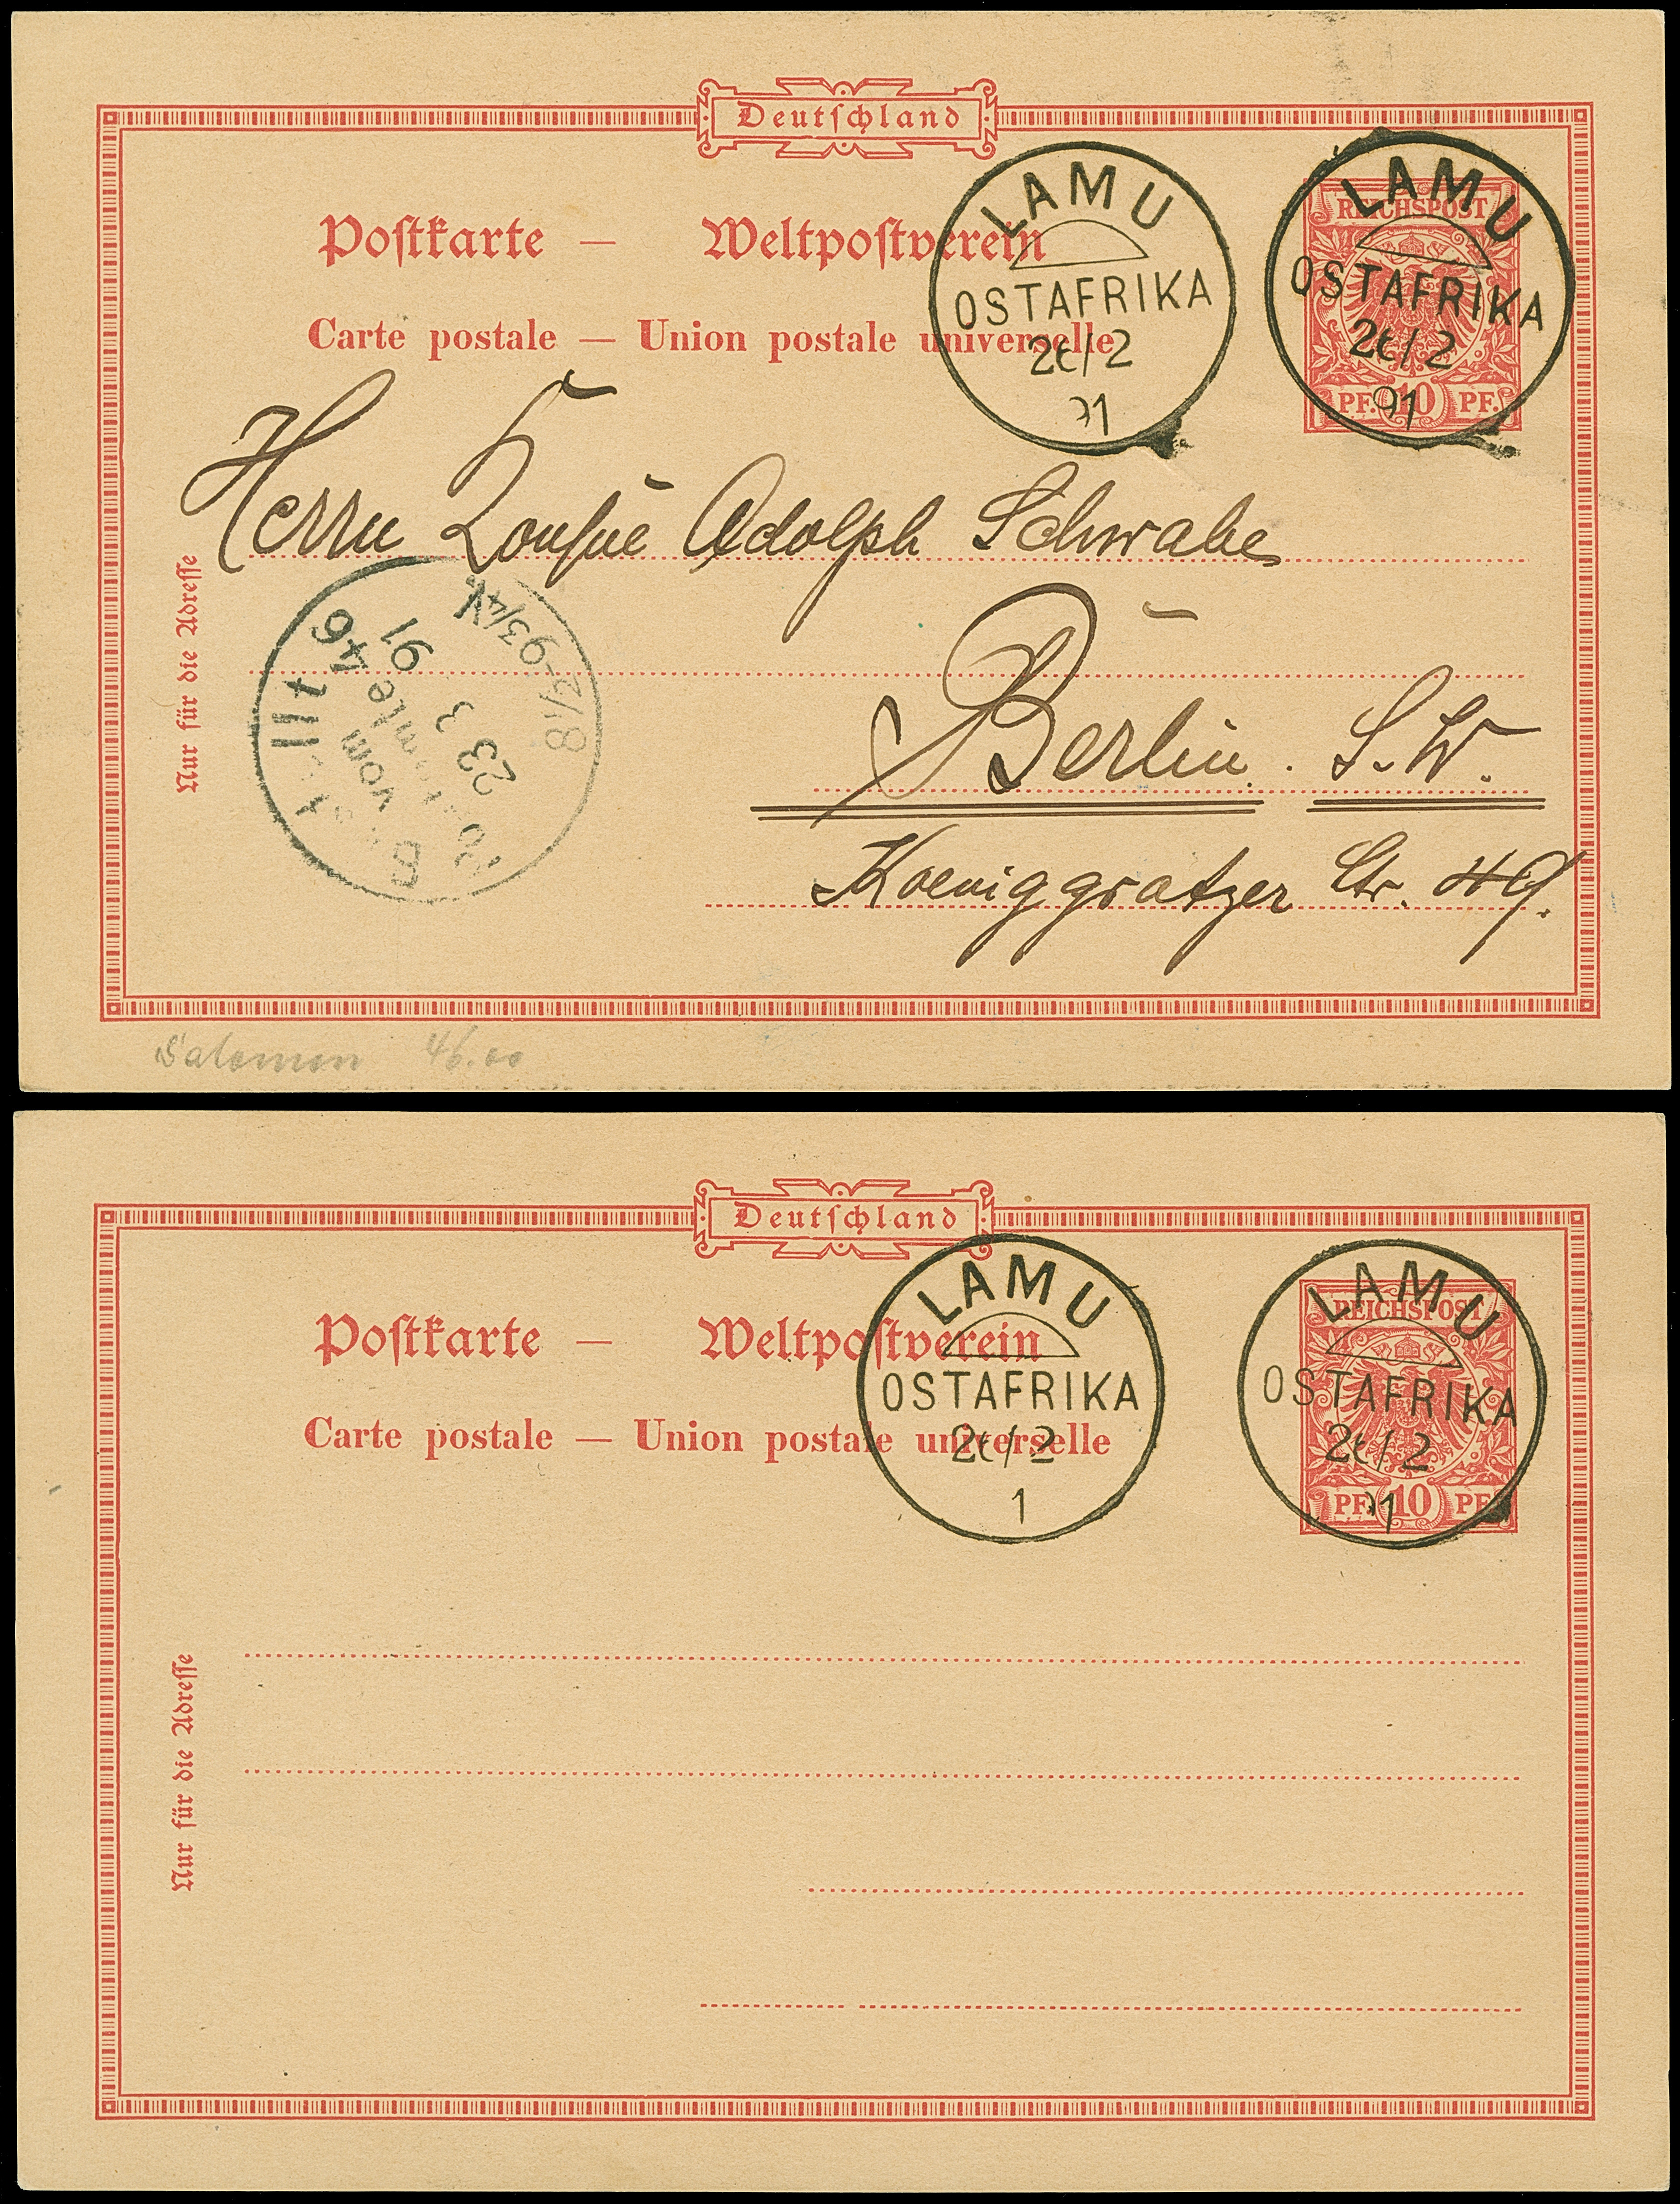 Deutschland
Postkarte — Weltpostverein
Carte postale — Union postale universelle
LAMU
OSTAFRIKA
/2
91
LAMU
REICHSPOST
OSTAFRIKA
/2
91
PF. 10 PF.
Herrn Adolph Schwabe
Berlin. S.W.
Koeniggratzer Str. 49.
Nur für die Adresse
Bestellt
vom
Postamte 46
23 3
91
8 1/2-9 3/4 V.
Salomon 46.00
Deutschland
Postkarte — Weltpostverein
Carte postale — Union postale universelle
LAMU
OSTAFRIKA
/2
1
LAMU
REICHSPOST
OSTAFRIKA
/2
91
PF. 10 PF.
Nur für die Adresse